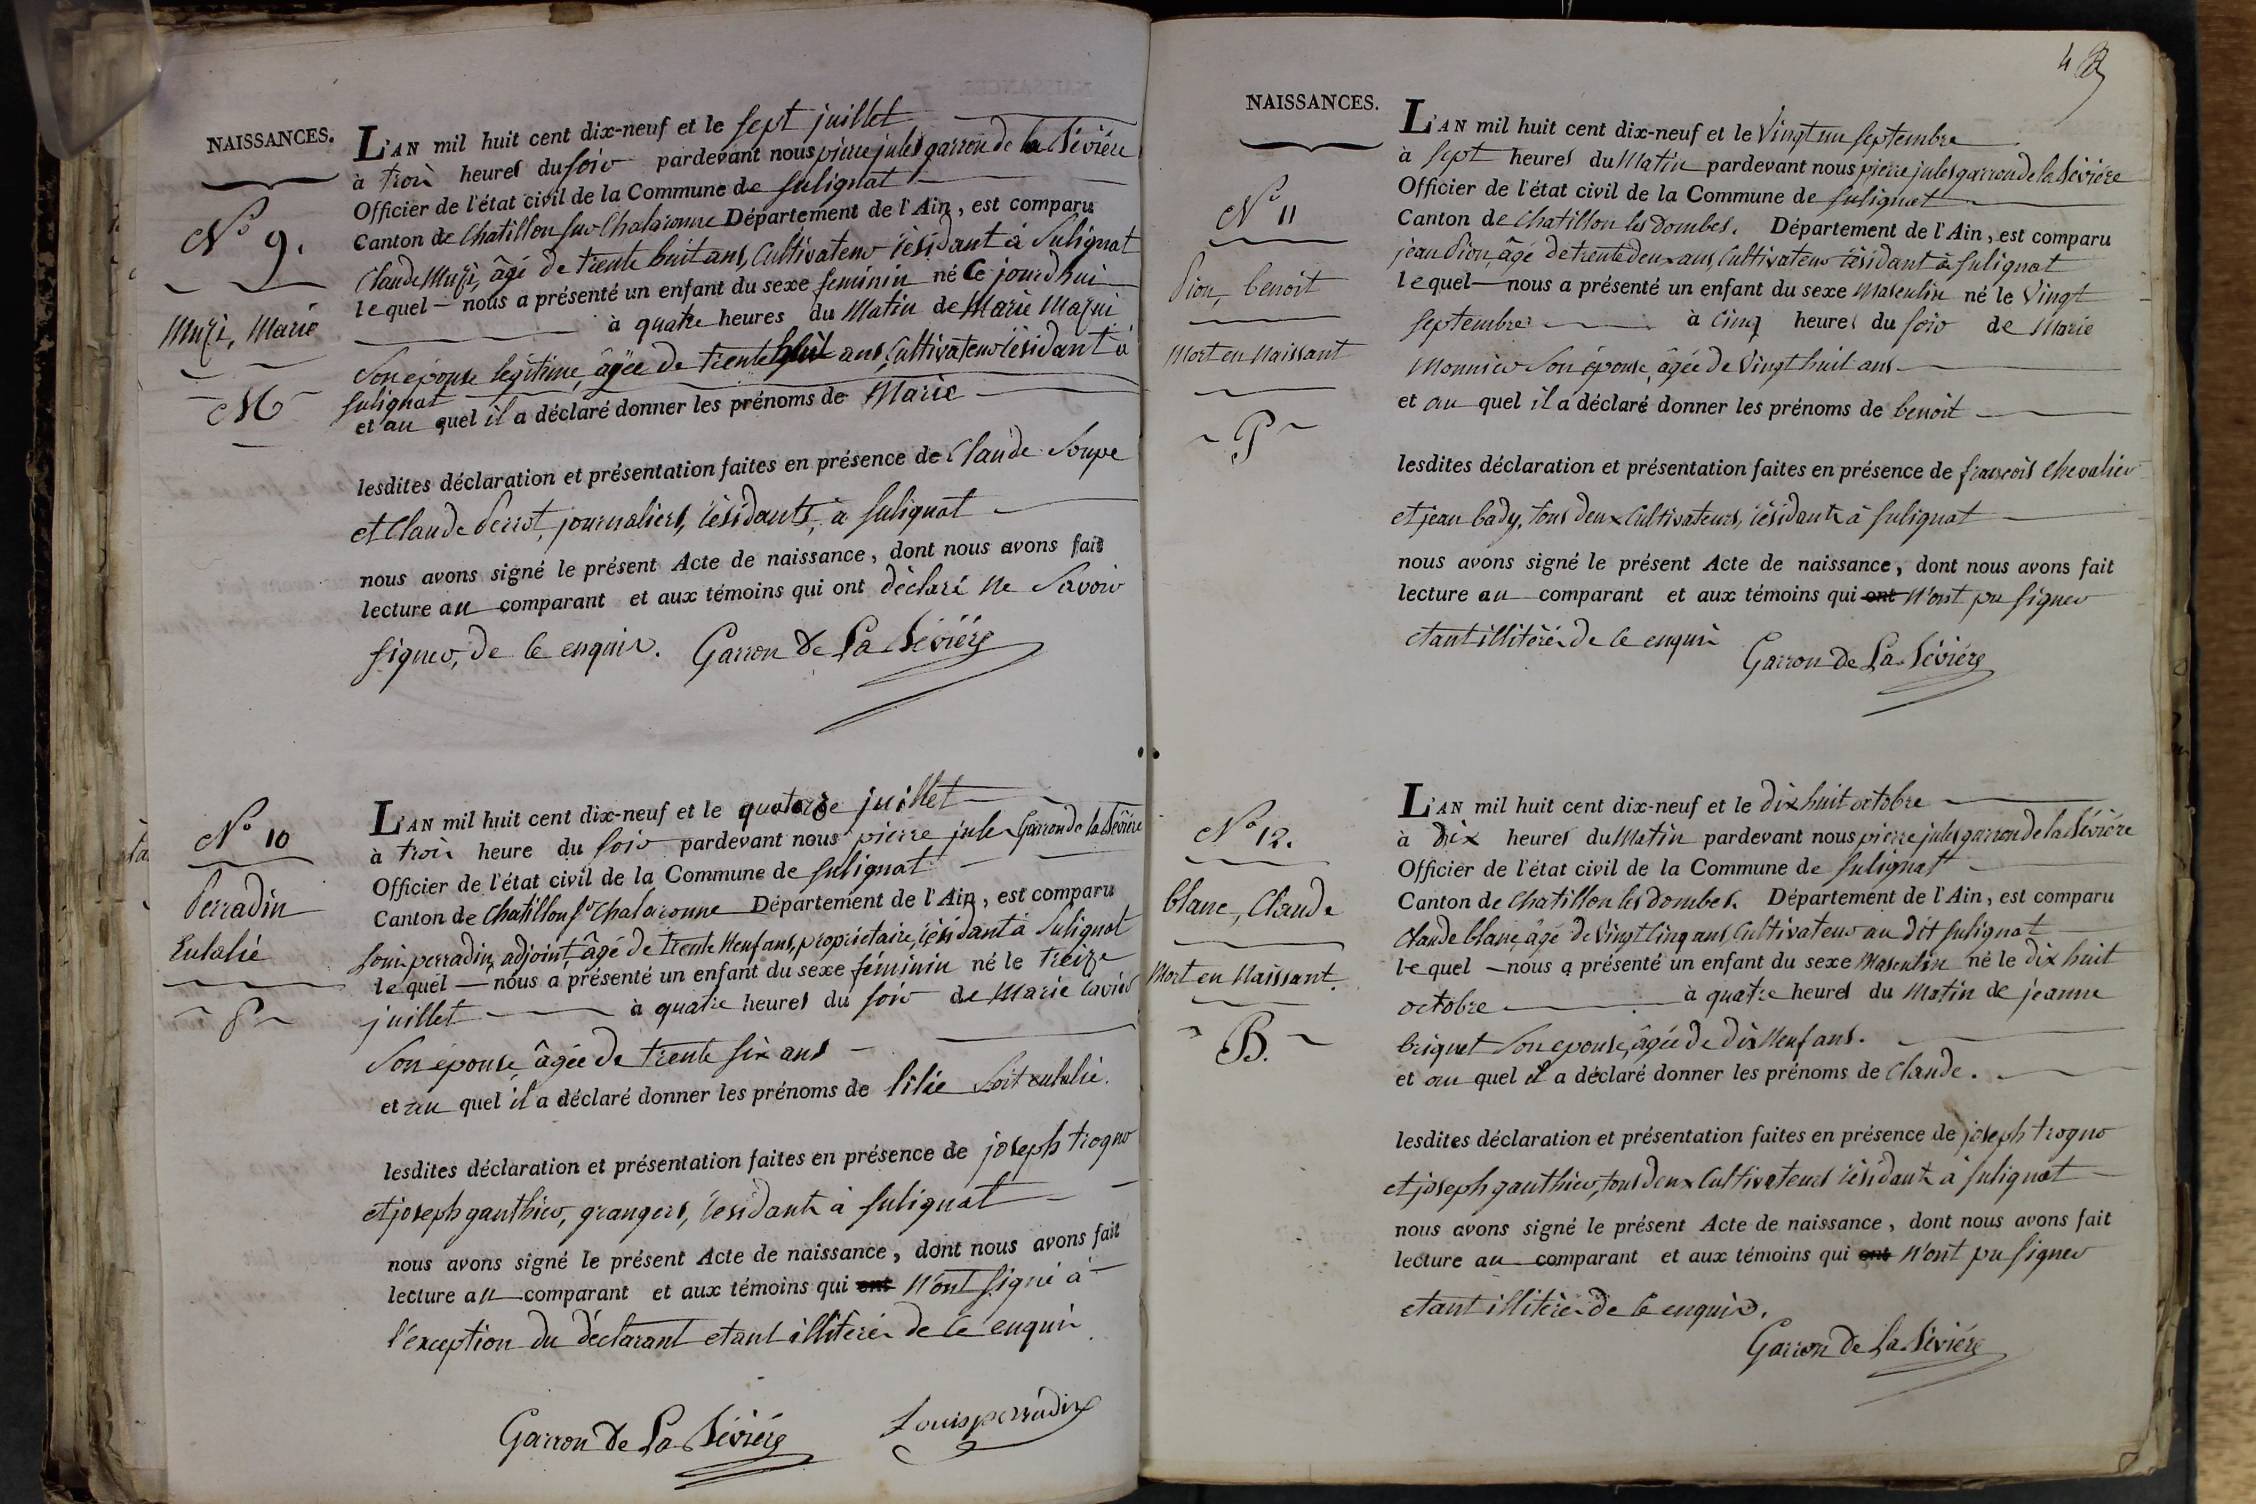 NAISSANCES.
L'AN mil huit cent dix-neuf et le sept juillet
à trois heures du soir pardevant nous pierre jules garron de la Sévière
Officier de l'état civil de la Commune de Sulignat
Canton de Chatillon sur Chalaronne Département de l'Ain, est comparu
Claude Muzi, âgé de trente huit ans, Cultivateur résidant à Sulignat
lequel nous a présenté un enfant du sexe feminin né Ce jourd'hui
à quatre heures du Matin de Marie
Son épouse légitime, âgée de trente huit ans, Cultivateur résidant à
Sulignat
et au quel il a déclaré donner les prénoms de Marie
lesdites déclaration et présentation faites en présence de Claude Soupe
et Claude Perrot, journaliers, résidants, à Sulignat
nous avons signé le présent Acte de naissance, dont nous avons fait
lecture au comparant et aux témoins qui ont déclaré Ne Savoir
signer, de ce enquis. Garron De La Sévière
N.º 9.
Muzi, Marie
M
L'AN mil huit cent dix-neuf et le quatorze juillet
à trois heure du soir pardevant nous pierre jules Garron de la Sévière
Officier de l'état civil de la Commune de Sulignat
Canton de Chatillon sr Chalaronne Département de l'Ain, est comparu
Louis perradin, adjoint, âgé de trente Neuf ans, propriétaire, résidant à Sulignat
lequel nous a présenté un enfant du sexe féminin né le treize
juillet à quatre heures du soir de Marie
Son épouse, âgée de trente six ans
et au quel il a déclaré donner les prénoms de lilie Soit eulalie.
lesdites déclaration et présentation faites en présence de joseph trogno
et joseph gauthier, grangers, résidants à Sulignat
nous avons signé le présent Acte de naissance, dont nous avons fait
lecture au comparant et aux témoins qui ont N'ont signé à
l'exception du déclarant etant illitérés de ce enquis
Garron De La Sévière Louis perradin
N.º 10
Perradin
Eulalie
P
NAISSANCES.
L'AN mil huit cent dix-neuf et le Vingt un Septembre
à Sept heures du Matin pardevant nous pierre jules garron de la Sévière
Officier de l'état civil de la Commune de Sulignat
Canton de Chatillon les dombes. Département de l'Ain, est comparu
jean Pion, âgé de trente deux ans, Cultivateur résidant à Sulignat
lequel nous a présenté un enfant du sexe Masculin né le Vingt
Septembre à Cinq heures du soir de Marie
Monnier Son épouse, âgée de Vingt huit ans
et au quel il a déclaré donner les prénoms de benoit
lesdites déclaration et présentation faites en présence de françois Chevalier
et jean bady, tous deux Cultivateurs, résidants à Sulignat
nous avons signé le présent Acte de naissance, dont nous avons fait
lecture au comparant et aux témoins qui ont N'ont pu signer
etant illitérés de ce enquis
Garron De La Sévière
N.º 11
Pion, benoit
Mort en Naissant
P
L'AN mil huit cent dix-neuf et le dix huit octobre
à Dix heures du Matin pardevant nous pierre jules garron de la Sévière
Officier de l'état civil de la Commune de Sulignat
Canton de Chatillon les dombes. Département de l'Ain, est comparu
Claude blanc, âgé de Vingt Cinq ans, Cultivateur au dit Sulignat
lequel nous a présenté un enfant du sexe Masculin né le dix huit
octobre à quatre heures du Matin de jeanne
briquet Son epouse, âgée de dix Neuf ans.
et au quel il a déclaré donner les prénoms de Claude.
lesdites déclaration et présentation faites en présence de joseph trogno
et joseph gauthier, tous deux Cultivateurs résidants à Sulignat
nous avons signé le présent Acte de naissance, dont nous avons fait
lecture au comparant et aux témoins qui ont N'ont pu signer
etant illitérés de ce enquis.
Garron De La Sévière
N.º 12.
blanc, Claude
Mort en Naissant.
B.